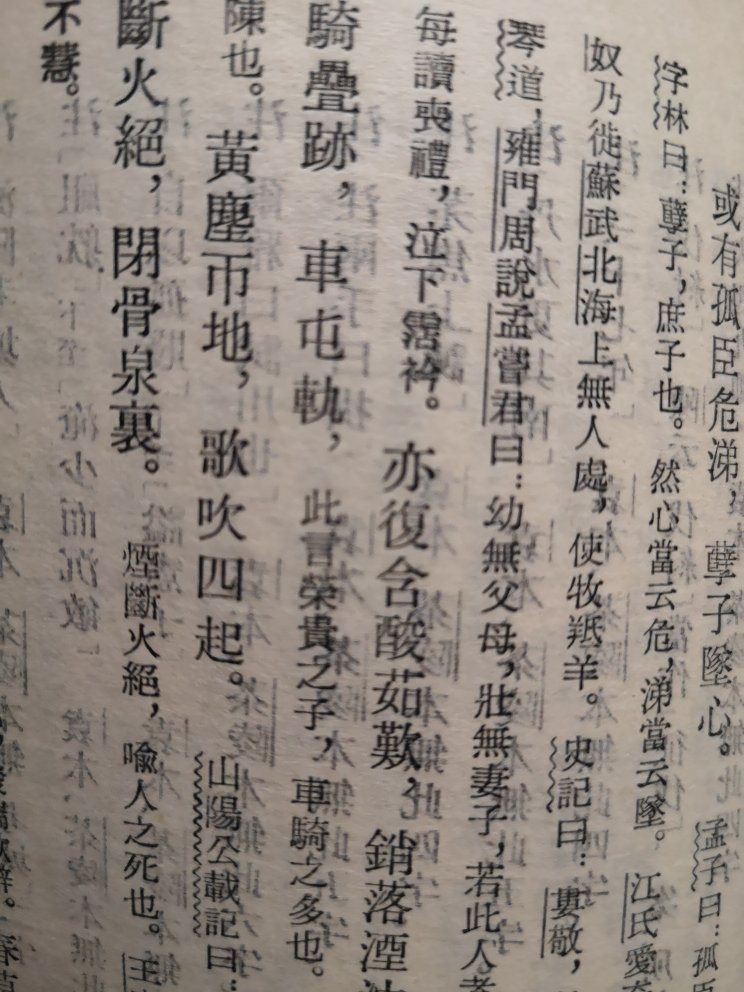 或有孤臣危涕，孽子墜心。孟子曰：孤臣
字林曰：孽子，庶子也。然心當云危，涕當云墜。江氏愛
奴乃徙蘇武北海上無人處，使牧羝羊。史記曰：婁敬，
琴道，雍門周說孟嘗君曰：幼無父母，壯無妻子，若此人者
每讀喪禮，泣下霑衿。亦復含酸茹歎，銷落湮沈
騎疊跡，車屯軌，此言榮貴之子，車騎之多也。
陳也。黃塵帀地，歌吹四起。山陽公載記曰：
斷火絕，閉骨泉裏。煙斷火絕，喻人之死也。王
不慧。